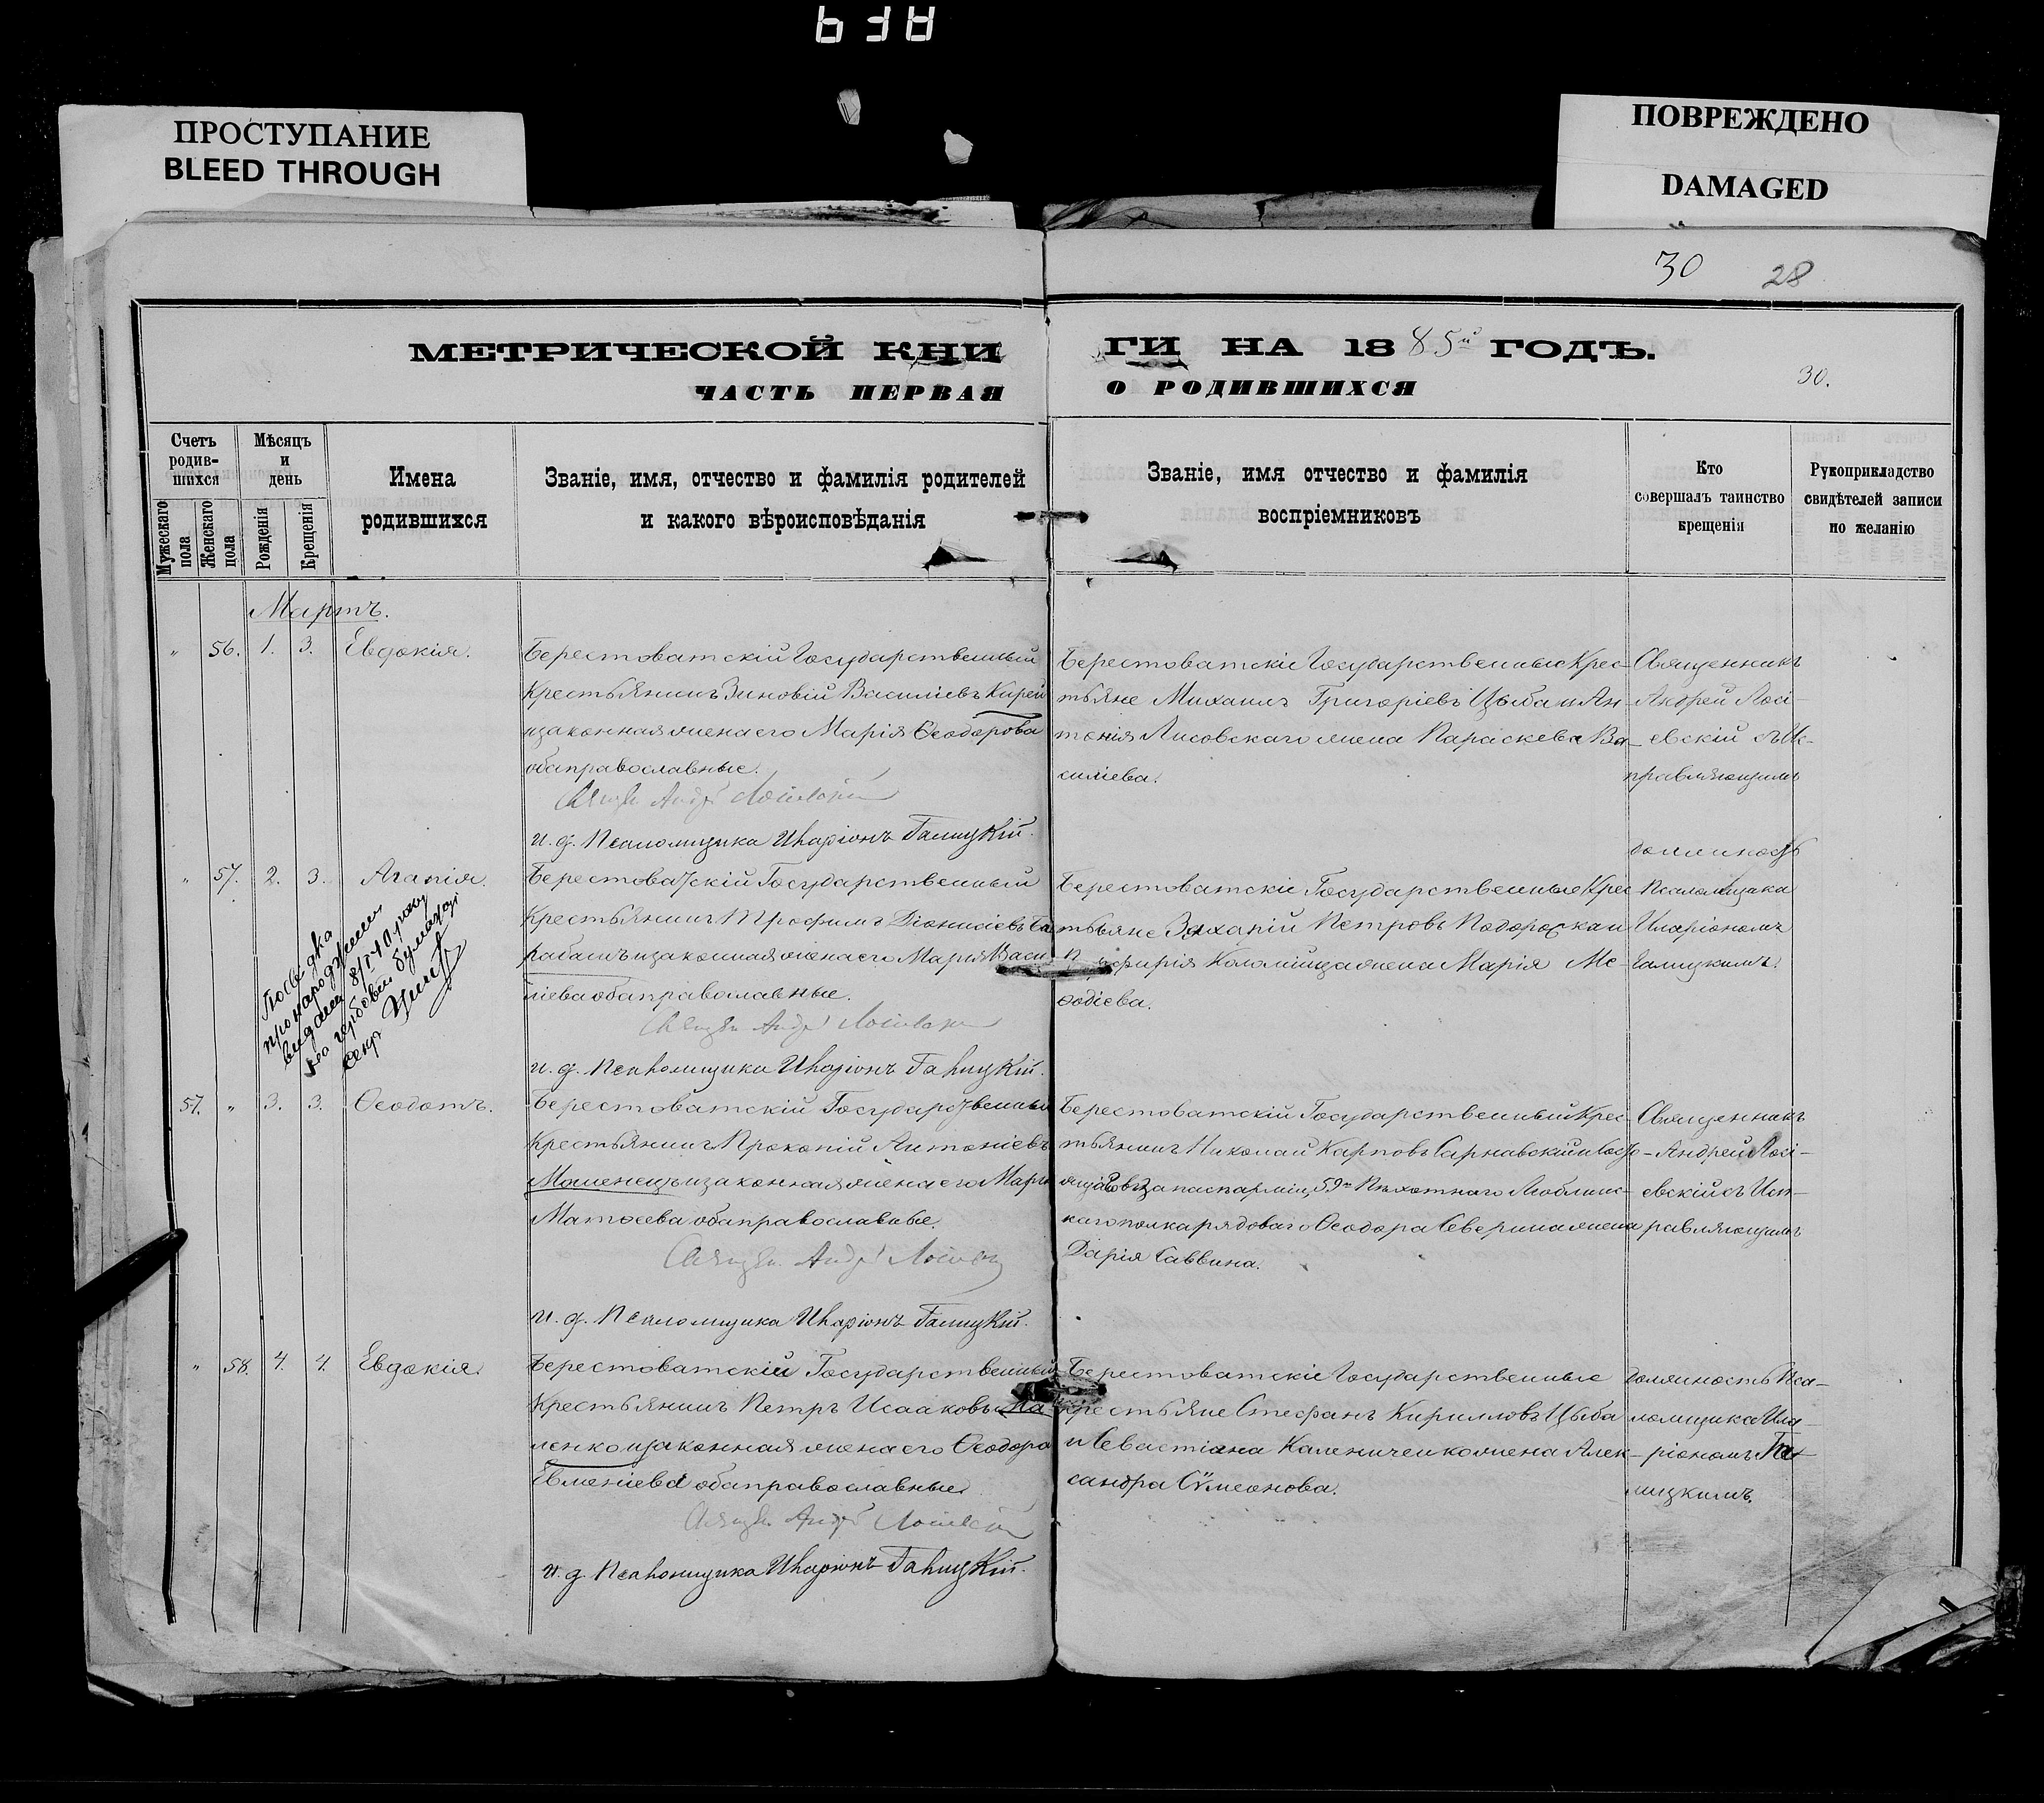 ПРОСТУПАНИЕ
BLEED THROUGH
ПОВРЕЖДЕНО
DAMAGED
30 28
МЕТРИЧЕСКОЙ КНИ
ГИ НА 1885й ГОДЪ.
ЧАСТЬ ПЕРВАЯ
О РОДИВШИХСЯ
30.
Счетъ
родив-
шихся
Мужескаго
пола
Женскаго
пола
Мѣсяцъ
и
день
Рожденія
Крещенія
Имена
родившихся
Званіе, имя, отчество и фамилія родителей
и какого вѣроисповѣданія
Званіе, имя отчество и фамилія
воспріемниковъ
Кто
совершалъ таинство
крещенія
Рукоприкладство
свидѣтелей записи
по желанію
Мартъ.
" 56. 1. 3. Евдокія.
Берестоватскій Государственный
Крестьянинъ Зиновій Василіевъ Кирей
и законная жена его Марія Ѳеодорова
оба православные.
Андрей Лосіевскій
и. д. Псаломщика Иларіонъ Галицкій.
Берестоватскіе Государственные Крес-
тьяне Михаилъ Григоріевъ Цыба и Ан-
тонія Лисовскаго жена Параскева Ва-
силіева.
Священникъ
Андрей Лосі-
евскій съ Ис-
правляющимъ
должность
Псаломщика
Иларіономъ
Галицкимъ.
" 57. 2. 3. Агапія.
Берестоватскій Государственный
Крестьянинъ Трофимъ Діонисіевъ Ба
рабашъ и законная жена его Марія Васи-
ліева оба православные.
Андрей Лосіевскій
и. д. Псаломщика Иларіонъ Галицкій.
Берестоватскіе Государственные Крес
тьяне Захарій Петровъ Подорожка и
Порфирія Коломійца жена Марія Ме-
ѳодіева.
про народження
57. " 3. 3. Ѳеодотъ.
Берестоватскій Государственный
Крестьянинъ Прокопій Антоніевъ
и законная жена его Марія
Матѳеева оба православные.
Андрей Лосіевскій
и. д. Псаломщика Иларіонъ Галицкій.
Берестоватскій Государственный Крес-
тьянинъ Николай Карповъ Сарнавскій и
запас арміи, 59го Пѣхотнаго Люблинс-
каго полка рядоваго Ѳеодора Северина жена
Дарія Саввина.
Священникъ
Андрей Лосі-
евскій съ Исп-
равляющимъ
" 58. 4. 4. Евдокія.
Берестоватскій Государственный
Крестьянинъ Петръ Исааковъ Па
ленко и законная жена его Ѳеодора
Евменіева оба православные.
Андрей Лосіевскій
и. д. Псаломщика Иларіонъ Галицкій.
Берестоватскіе Государственные
крестьяне Стефанъ Кирилловъ Цыба
и Севастіана Калениченко жена Алек-
сандра Сѵмеонова.
должность Пса-
ломщика Ила-
ріономъ Га-
лицкимъ.